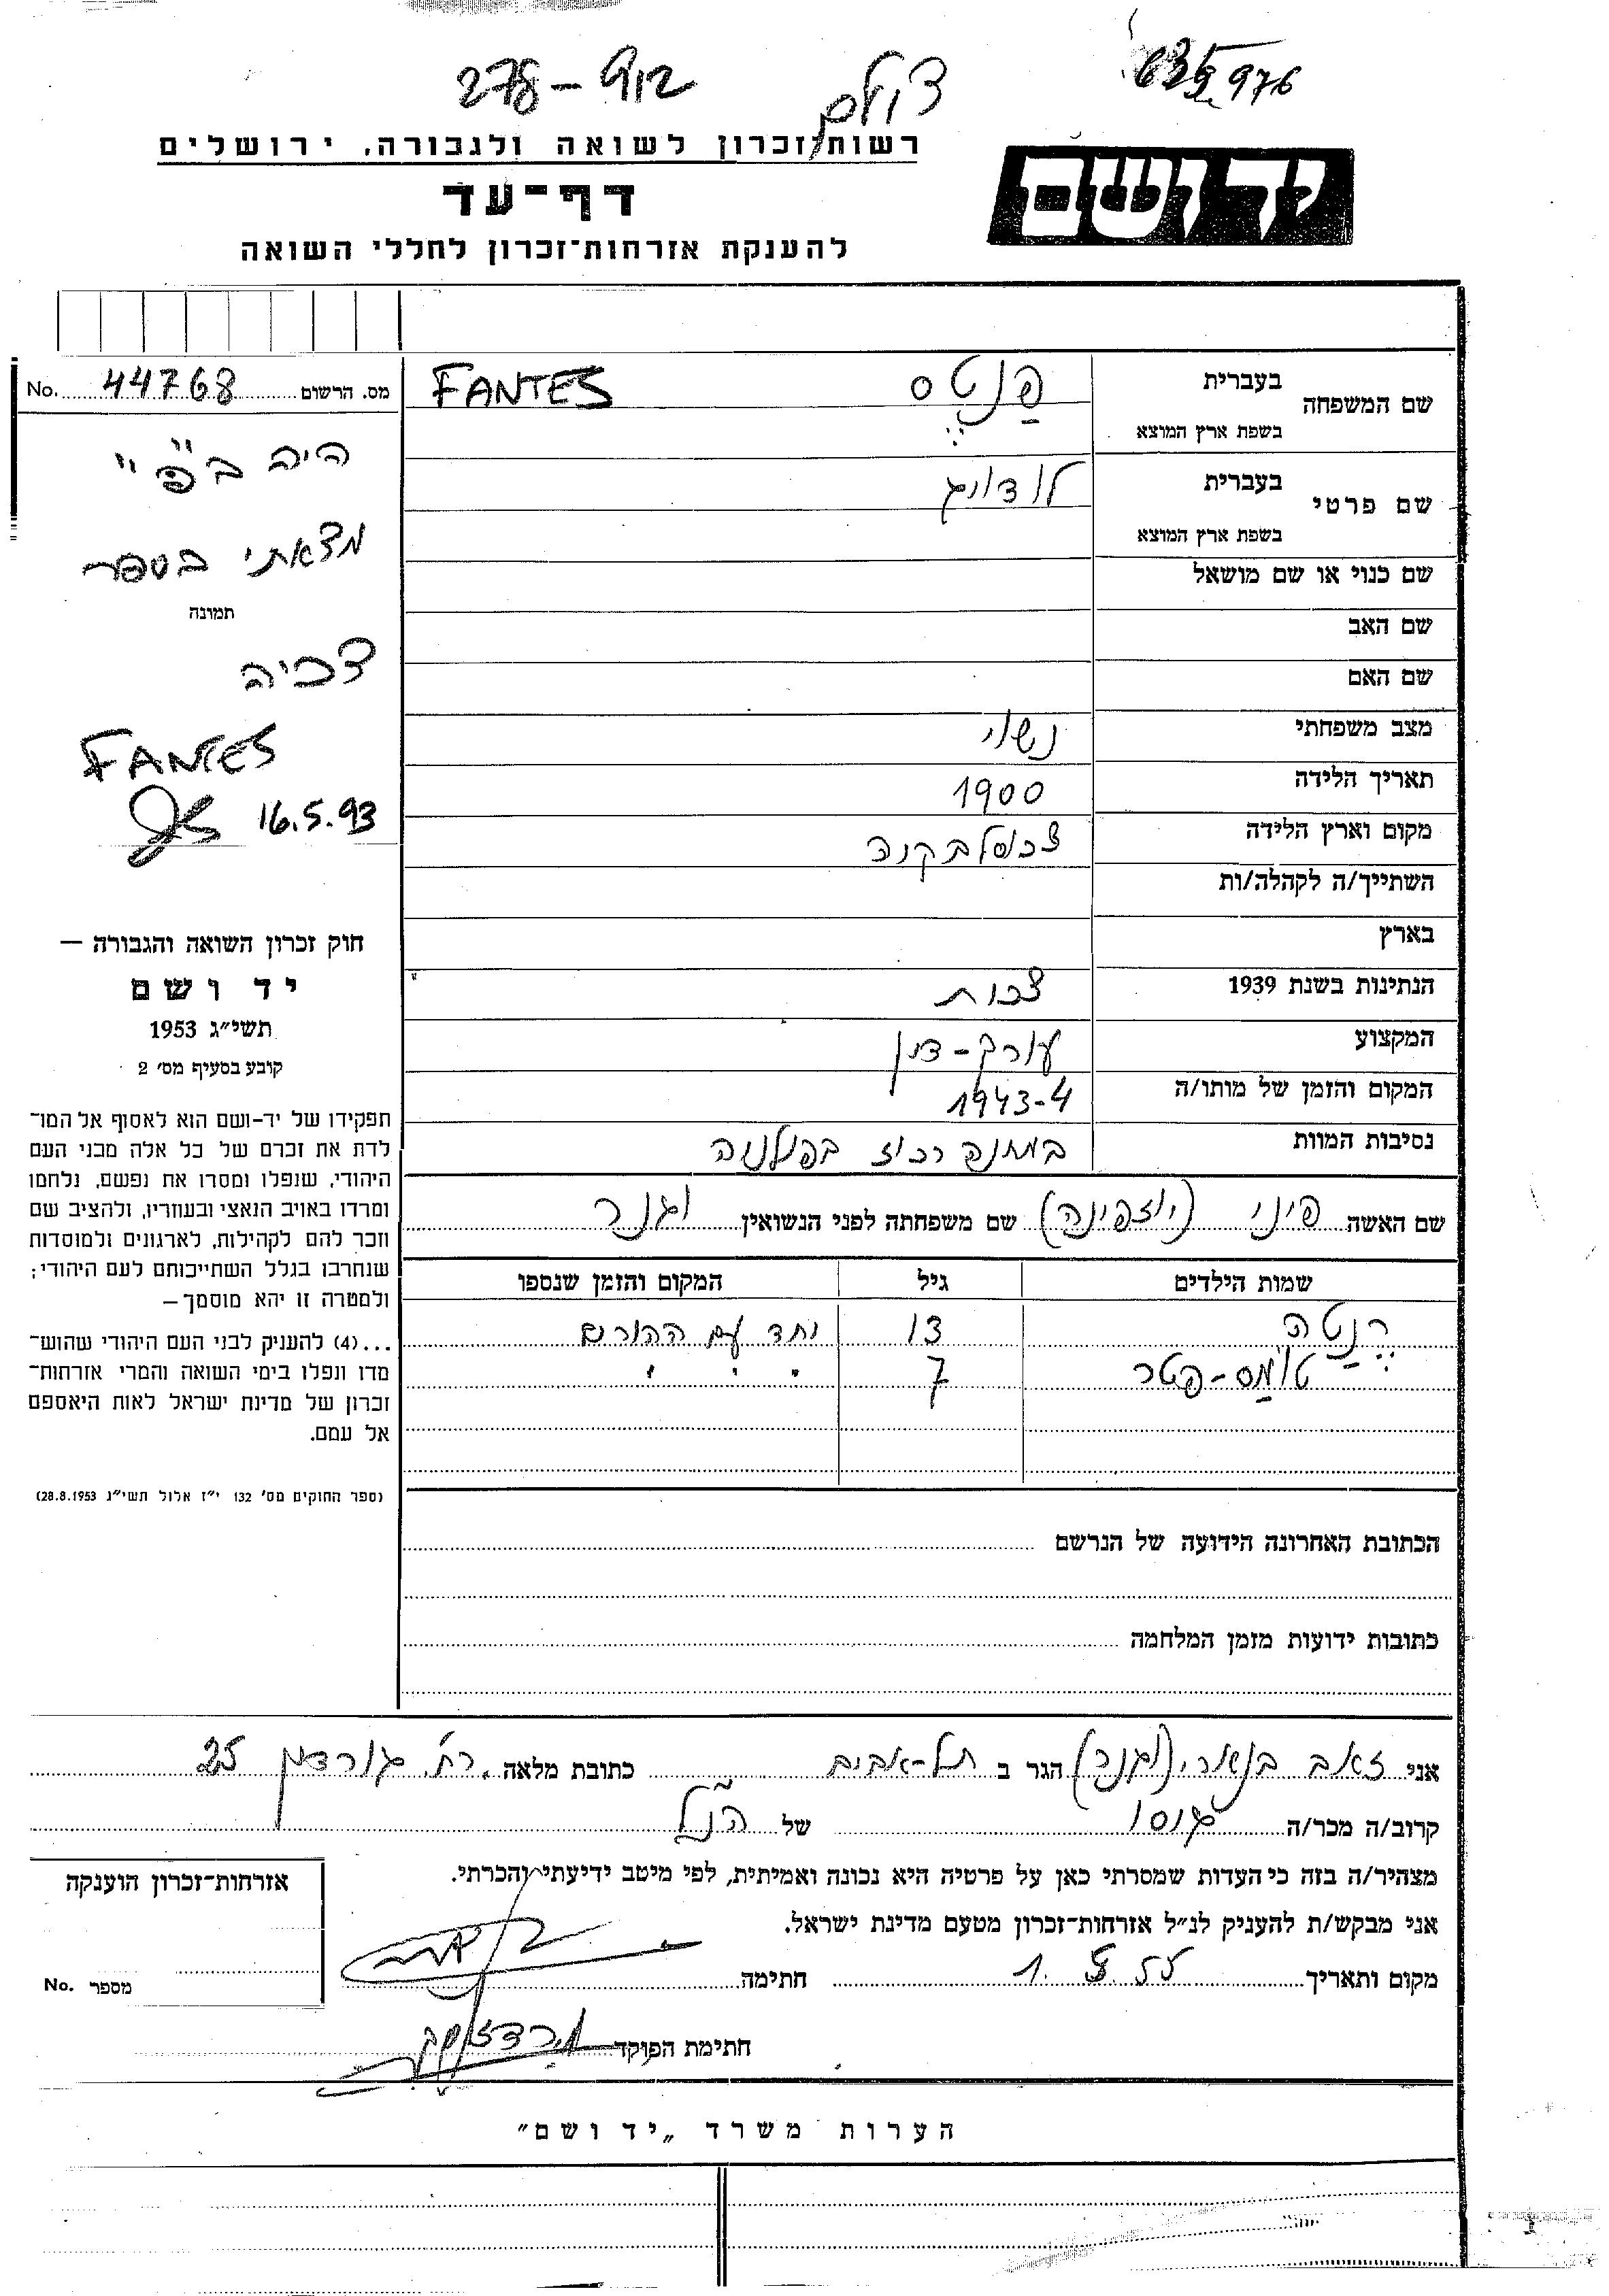 635976
צולם
278-912
יד ושם
רשות זכרון לשואה ולגבורה, ירושלים
דף-עד
להענקת אזרחות-זכרון לחללי השואה
שם המשפחה בעברית פַנטס
בשפת ארץ המוצא FANTES
שם פרטי בעברית לודויג
בשפת ארץ המוצא
שם כנוי או שם מושאל
שם האב
שם האם
מצב משפחתי נשוי
תאריך הלידה 1900
מקום וארץ הלידה
השתייך/ה לקהלה/ות
בארץ
הנתינות בשנת 1939 צכות
המקצוע עורך-דין
המקום והזמן של מותו/ה 1943-4
נסיבות המוות במחנה רכוז בפולניה
מס. הרשום 44768 No.
היה ב"פ"
מצאתי בספר
תמונה
צכיה
FANTES
16.5.93
חוק זכרון השואה והגבורה —
יד ושם
תשי״ג 1953
קובע בסעיף מס׳ 2
תפקידו של יד-ושם הוא לאסוף אל המו־
לדת את זכרם של כל אלה מבני העם
היהודי, שנפלו ומסרו את נפשם, נלחמו
ומרדו באויב הנאצי ובעוזריו, ולהציב שם
וזכר להם לקהילות, לארגונים ולמוסדות
שנחרבו בגלל השתייכותם לעם היהודי;
ולמטרה זו יהא מוסמך—
...(4) להעניק לבני העם היהודי שהוש־
מדו ונפלו בימי השואה והמרי אזרחות־
זכרון של מדינת ישראל לאות היאספם
אל עמם.
(ספר החוקים מס׳ 132 י״ז אלול תשי״ג 28.8.1953)
שם האשה פיני (יוזפינה) שם משפחתה לפני הנשואין וגנר
שמות הילדים גיל המקום והזמן שנספו
רֶנַטה 13 יחד עם ההורים
טומַס-פטר 7 " " "
הכתובת האחרונה הידועה של הנרשם
כתובות ידועות מזמן המלחמה
אני זאב בנאורי (וגנר) הגר ב תל-אביב כתובת מלאה רח. גורדון 25
קרוב/ה מכר/ה גיסו של הנ"ל
מצהיר/ה בזה כי העדות שמסרתי כאן על פרטיה היא נכונה ואמיתית, לפי מיטב ידיעתי והכרתי.
אני מבקש/ת להעניק לנ״ל אזרחות-זכרון מטעם מדינת ישראל.
מקום ותאריך חתימה
חתימת הפוקד
אזרחות-זכרון הוענקה
מספר No.
הערות משרד „יד ושם״